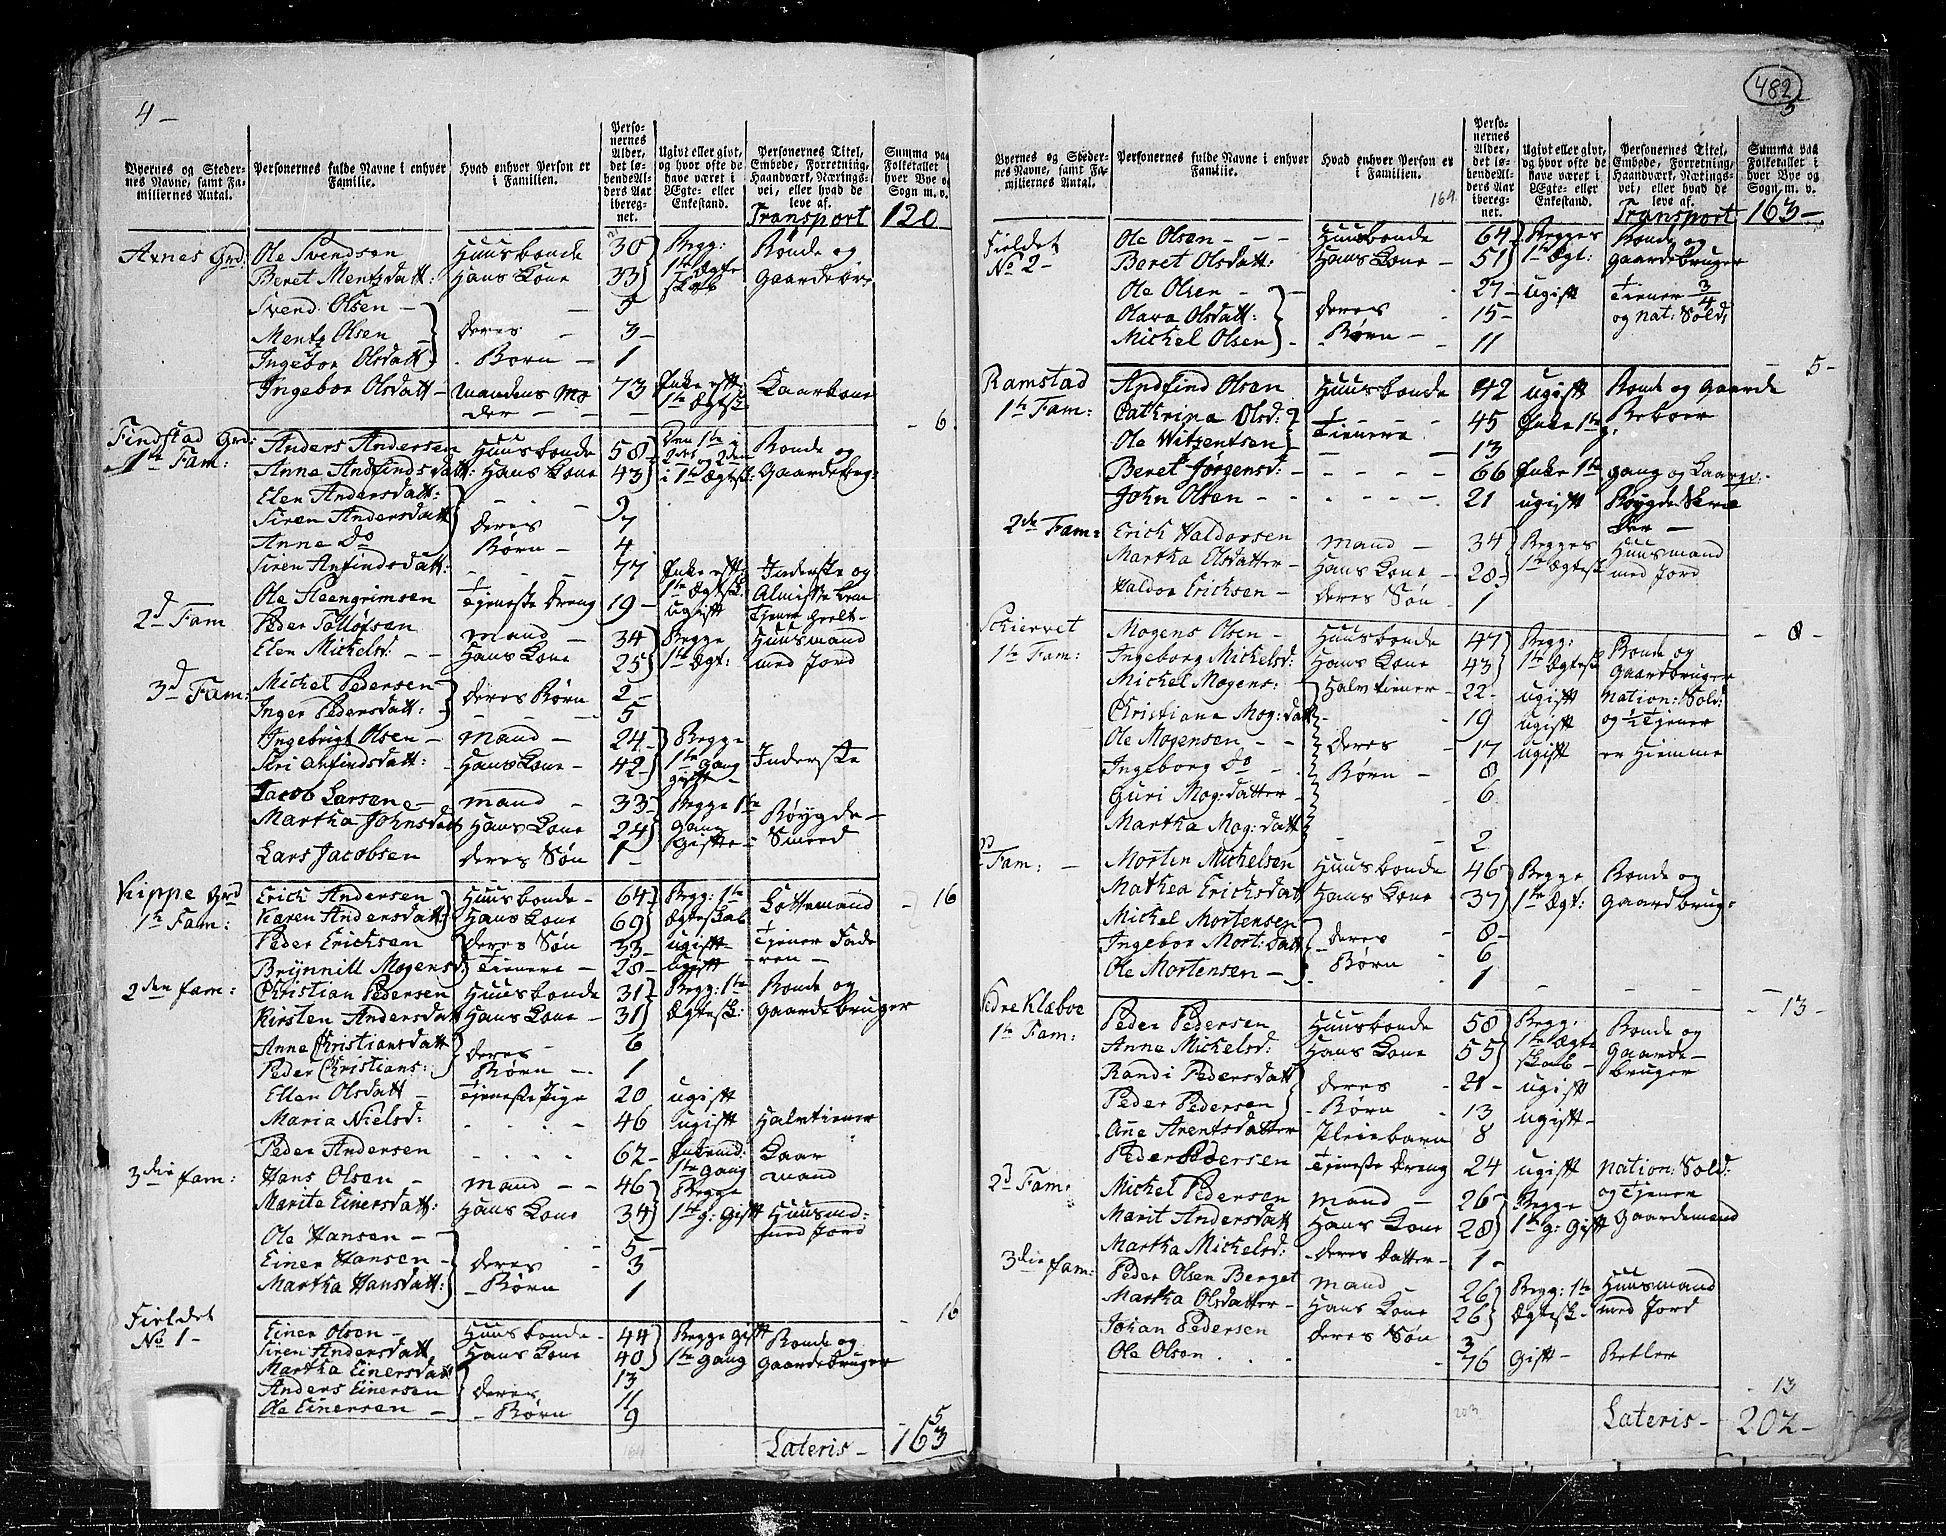 4 -
Byernes og Steder-
nes Navne, samt Fa-
miliernes Antal.
Personernes fulde Navne i enhver
Familie.
Hvad enhver Person er
i Familien.
Perso-
nernes
Alder,
det lø-
bende Al-
ders Aar
ibereg-
net.
Ugivt eller givt,
og hvor ofte de
have været i
Ægte- eller
Enkestand.
Personernes Titel,
Embede, Forretning,
Haandværk, Nærings-
vei, eller hvad de
leve af.
Summa paa
Folketallet i
hver Bye og
Sogn m. v.
Transport 120
Avnes Grd: Ole Svendsen Huusbonde 30 Begg: Bonde og
Beret Mentzdatt: Hans Kone 33 1te Ægteskab Gaardebr:
Svend Olsen - 5
Mentz Olsen deres 3 -
Ingebor Olsdatt Børn - 1
Ingebor Olsdatt - Mandens Moder 73 Enke efter 1te Ægtesk: Kaarkone
- 6
Findstad Grd:
1te Fam: Anders Andersen Huusbonde 58 Bonde og
Anne Andfindsdatt: Hans Kone 43 i 1te Ægtesk: Gaardebrg:
Elen Andersdatt: 9
Siren Andersdatt deres 7
Anne Do Børn - 4
Siren Anfindsdatt: 77 Enke efter 1te Ægtesk: Inderste og
Ole Steengrimsen Tieneste Dreng 19 - ugift
2d Fam Peder Tølløfsen mand - 34 Begge Huusmand
Elen Mickelsd: - - Hans Kone 25 1te Ægt: med Jord
Mickel Pedersen deres Børn 2 -
Inger Pedersdatt: - 5
3d Fam: Ingebrigt Olsen - mand - 24 - Begge
Siri Anfindsdatt: Hans Kone - 42 - 1te Gang gifte - Inderste
Jacob Larsen - mand - 33 - Begge 1te Bøygde -
Martha Johnsdatt Hans Kone 24 Gang Gifte - Smeed
Lars Jacobsen deres Søn 1 -
- 16
Kippe Grd
1te Fam: Erich Andersen Huusbonde - 64 Begg: 1te
Karen Andersdatt: Hans Kone 69 Ægteskab
Peder Ericksen deres Søn 33 - ugift - Tjener Faderen -
Brynnill Mogensd: Tienere - 28 - ugift
2den fam: Christian Pedersen Huusbonde 31 Begg: 1te Bonde og
Kirsten Andersdatt Hans Kone - 31 Ægtesk: Gaardebruger
Anne Christiansdatt deres - 6
Peder Christians: Børn - 1
Ellen Olsdatt - TjenestePige 20 ugift
Maria Nielsd: 46 ugift Halvtiener
Peder Andersen 62 - Enkemd: 1te Gang Kaarmand
3die fam: Hans Olsen - mand - - 46 Begge
Marite Einersdatt: Hans Kone 34 1te g: Gift Huusmd: med Jord
Ole Hansen - - 5 -
Einer Hansen - deres 3
Martha Hansdatt: - Børn 1
- 16
Fieldet
No 1 - Einer Olsen - Huusbonde - 44 Begge Gift Bonde og
Siren Andersdatt Hans Kone 40 1te Gang Gaardebruger
Martha Einersdatt 13
Anders Einersen deres 11
Ole Einersen - - Børn 9
- 5
Lateris - 163
482
5
Byernes og Steder-
nes Navne, samt Fa-
miliernes Antal.
Personernes fulde Navne i enhver
Familie.
Hvad enhver Person er
i Familien.
164
Perso-
nernes
Alder,
det lø-
bende Al-
ders Aar
ibereg-
net.
Ugivt eller givt,
og hvor ofte de
have været i
Ægte- eller
Enkestand.
Personernes Titel,
Embede, Forretning,
Haandværk, Nærings-
vei, eller hvad de
leve af.
Summa paa
Folketallet i
hver Bye og
Sogn m. v.
Transport 163 -
Fieldet
No 2 - Ole Olsen - - - Huusbonde 64 Begges Bonde og
Beret Olsdatt: Hans Kone - 51 1te Ægt: Gaardebruger
Ole Olsen - 27 - ugift Tiener 3/4
Olava Olsdatt: deres 15 - og nat: Sold:
Mickel Olsen Børn - 11
5 -
Ramstad
1te Fam: Andfind Olsen Huusbonde 42 ugift Bonde og Gaarde
Cathrina Olsd: Tienere 45 Enke 1te g. Beboer
Ole Witzentsen 13
Beret Jørgensd: - - - - 66 Enke 1te gang og
John Olsen - - 21 ugift
2de Fam: Erich Haldorsen mand - 34 Begges Huusmand
Martha Olsdatter - Hans Kone - 28 1te Ægtesk med Jord
Haldor Ericksen - deres Søn - 1
- 8 -
Schiervet
1te Fam: Mogens Olsen - Huusbonde 47 Begg: Bonde og
Ingeborg Mickelsd: Hans Kone - 43 1te Ægtesk Gaardbruger
Mickel Mogens: Halvtiener - 22 - ugift Nation: Sold:
Christiana Mog: datt - 19 ugift og 1/2 Tjener
Ole Mogensen - - deres 17 ugift er Hiemme
Ingeborg Do - Børn - 8
Guri Mog: datter - 6
Martha Mog: datt 2
2d Fam: - Morten Mickelsen Huusbonde 46 Begge Bonde og
Mathea Ericksdatt Hans Kone 37 1te Ægt: Gaardbrug:
Mickel Mortensen 8 -
Ingebor Mort: datt deres 6
Ole Mortensen - Børn 1
- 13 -
Øvre Klæboe
1te Fam: Peder Pedersen Huusbonde 58 Begg: Bonde og
Anne Mickelsd: Hans Kone 55 1te Ægteskab - Gaarde-
Randi Pedersdatt deres 21 - ugift bruger
Peder Pedersen - Børn 13 ugift -
Ane Arentsdatter Pleiebarn 8
Peder Pedersen Tjeneste Dreng 24 ugift Nation: Sold:
og Tjener
2d Fam: Mickel Pedersen mand - 26 Begge
Marit Andersdatt Hans Kone 28 1te g: Gift Gaardemand
Martha Mickelsd: - deres datter - 1 -
3die fam: Peder Olsen Berget mand - 26 Begg: 1te Huusmand
Martha Olsdatter - Hans Kone 26 Ægtesk - med Jord
Johan Pedersen deres Søn 3
Ole Olsen 76 Gift - Betler
- 13
203
Lateris - 202 -